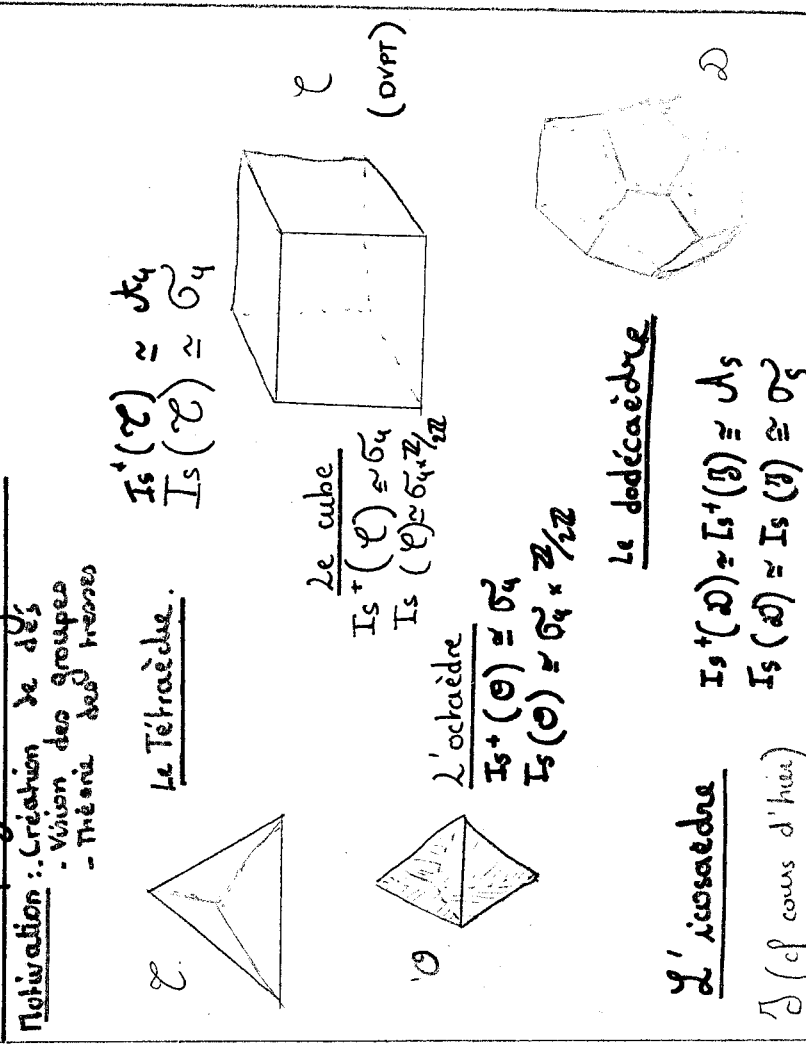 Motivation : - Création de dés
- Vision des groupes
- Théorie des tresses
Le Tétraèdre.
Is⁺(𝒯) ≃ 𝒜₄
Is(𝒯) ≃ 𝔖₄
𝒯
Le cube
Is⁺(𝒞) ≃ 𝔖₄
Is(𝒞) ≃ 𝔖₄ × ℤ/2ℤ
𝒞
(DVPT)
L'octaèdre
Is⁺(𝒪) ≃ 𝔖₄
Is(𝒪) ≃ 𝔖₄ × ℤ/2ℤ
𝒪
Le dodécaèdre
𝒟
L'icosaèdre
Is⁺(𝒟) ≃ Is⁺(ℐ) ≃ 𝒜₅
Is(𝒟) ≃ Is(ℐ) ≃ 𝔖₅
ℐ (cf cours d'hier)